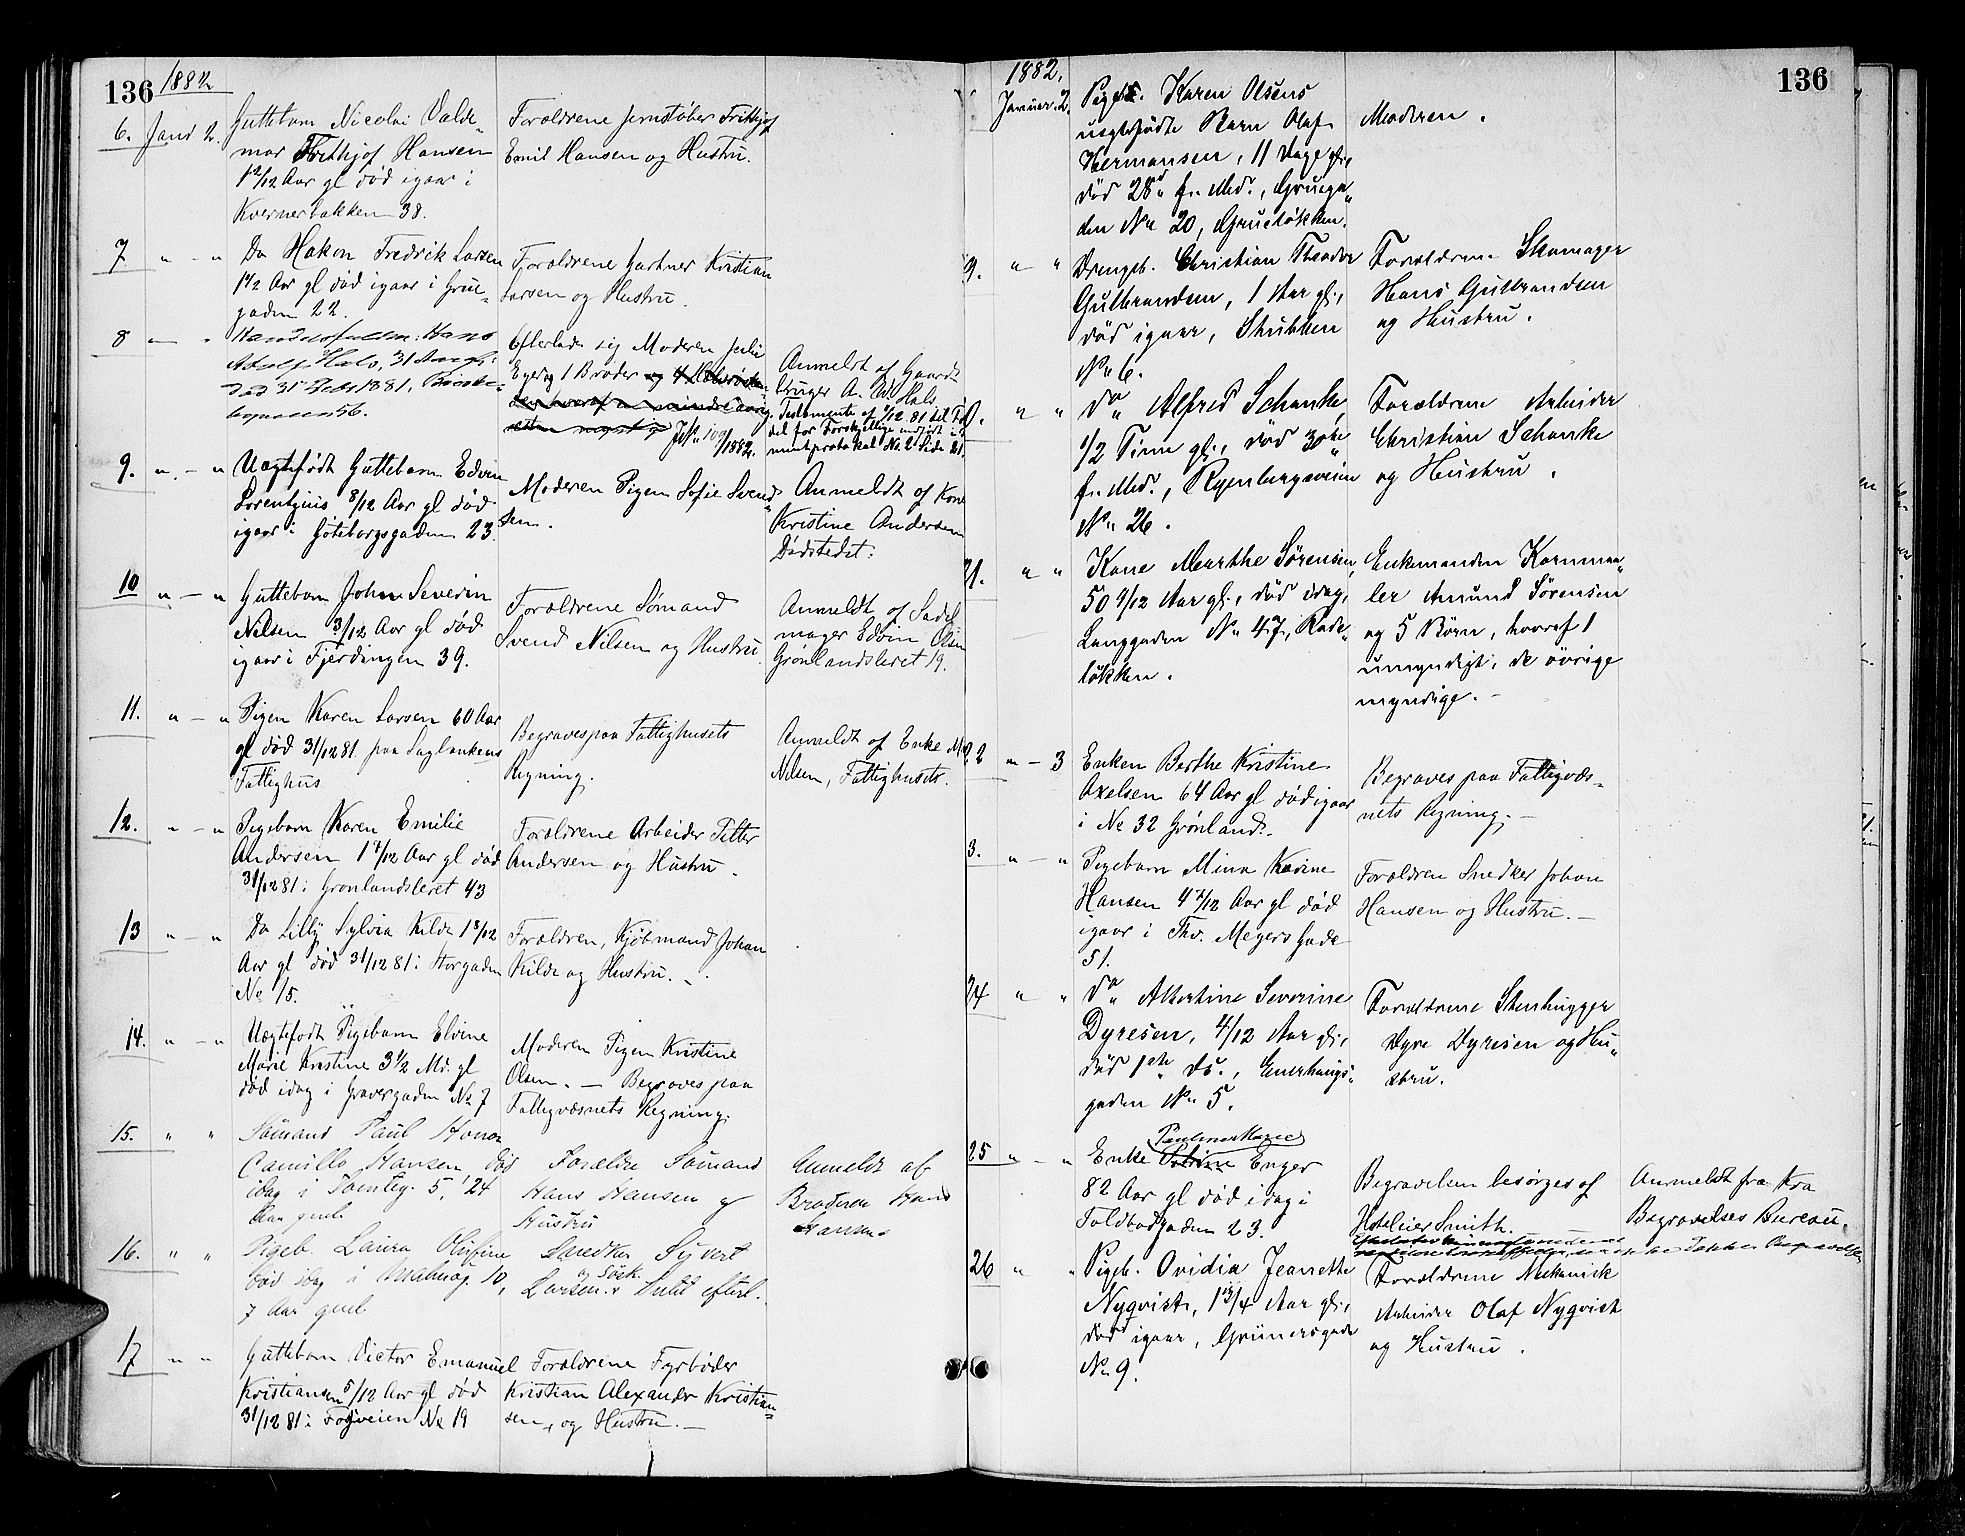 136 1882
6. Janr 2. Guttebarn Nicolai Valde-
mar Frithjof Hansen
1 2/12 Aar gl død igaar i
Kvernerbakken 38.
Forældrene Jernstøber Frithjof
Emil Hansen og Hustru.
7 " - " Do Hakon Fredrik Larsen
1 1/2 Aar gl død igaar i Grue-
gaden 22.
Forældrene Gartner Kristian
Larsen og Hustru.
8 " - " Handelsfuldm: Hans
Adolf Hals, 31 Aar gl:
død 31 Debr 1881,
56.
Efterlader sig Moderen
1 Broder og
1882.
Anmeldt af Gaard-
bruger A. Hals
Testamente af
No 2 Side
9. " - " Uægtefødt Guttebarn Edvin
Lorentzius 8/12 Aar gl død
igaar i Gøteborggaden 23.
Moderen Pigen Sofie Svend-
sen.
Anmeldt af Kone
Kristine Andersen
Dødstedet:
10 " - " Guttebarn John Severin
Nilsen 3/12 Aar gl død
igaar i Fjerdingen 39.
Forældrene Sømand
Svend Nilsen og Hustru.
Anmeldt af Sadel-
mager Edvin Olsen
Grønlandsleret 19.
11. " - " Pigen Karen Larsen 60 Aar
gl død 31/12 81 paa Saglbankens
Fattighus
Begraves paa Fattighusets
Regning.
Anmeldt af Enke
Nilsen, Fattighuset.
12. " - " Pigebarn Karen Emilie
Andersen 1 4/12 Aar gl død
31/12 81 i Grønlandsleret 43
Forældrene Arbeider Petter
Andersen og Hustru.
13 " - " Do Lilly Sylvia Kilde 1 8/12
Aar gl død 31/12 81 i Storgaden
No 15.
Forældren, Kjøbmand Johan
Kilde og Hustru. -
14. " - " Uægtefødt Pigebarn Elvine
Marie Kristine 3 1/2 Md. gl
død idag i Gravergaden No 7
Moderen Pigen Kristine
Olsen. - Begraves paa
Fattigvæsnets Regning.
15. " " Sømand Paul
Camillo Hansen død
idag i Tomteg. 5, 24
Aar gml.
Forældre Sømand
Hans Hansen og
Hustru
Anmeldt af
Broderen Hans
Hansen
16. " " Pigeb. Laura Olufine
død idag i Malmøg. 10,
7 Aar gml
Snedker Syvert
Larsen og Søsk.
efterl.
17 " " Guttebarn Victor Emanuel
Kristiansen 5/12 Aar gl død
31/12 81 i No 19
Forældrene Fyrbøder
Kristian Alexander Kristian-
sen, og Hustru. -
1882. 136
Januar. 2. Pigeb. Karen Olsens
uægtefødte Barn Olaf
Hermansen, 11 Dage gl.,
død 28d f. Md., Gruega-
den No 20, Grueløkken.
Moderen.
9. " " Drengeb. Christian Theodor
Gulbrandsen, 1 Aar gl.,
død igaar, Stubben
No 6.
Forældrene Skomager
Hans Gulbrandsen
og Hustru.
0. " " Do Alfred Schanke,
1/2 Time gl., død 30te
f. Md., Ryenbergsveien
No 26.
Forældrene Arbeider
Christian Schanke
og Hustru.
21. " " Kone Marthe Sørensen,
50 4/12 Aar gl., død idag,
Langgaden No 47, Rode-
løkken.
Enkemanden Kornmaa-
ler Amund Sørensen
og 5 Børn, hvoraf 1
umyndigt, de øvrige
myndige. -
22 " - 3 Enken Berthe Kristine
Axelsen 64 Aar gl død igaar
i No 32 Grønland.
Begraves paa Fattigvæs-
nets Regning. -
3. " - " Pigebarn Mina Karine
Hansen 4 7/12 Aar gl død
igaar i Thv. Meyers Gade
51.
Forældren Snedker Johan
Hansen og Hustru. -
24 " " Do Albertine Severine
Dyresen, 4/12 Aar gl.,
død 1ste ds., Enerhaugs-
gaden No 5.
Forældrene Stenhugger
Dyre Dyresen og Hu-
stru.
25 " - " Pauline Marie
Enke Enger
82 Aar gl død idag i
Toldbodgaden 23.
Begravelsen besørges af
Hotelier Smith.
Anmeldt fra Kra
Begravelses Bureau.
26 " " Pigeb. Ovidia Jeanette
Nyqvist, 1 3/4 Aar gl.,
død igaar, Grünersgade
No 9.
Forældrene Mekanisk
Arbeider Olaf Nyqvist
og Hustru.